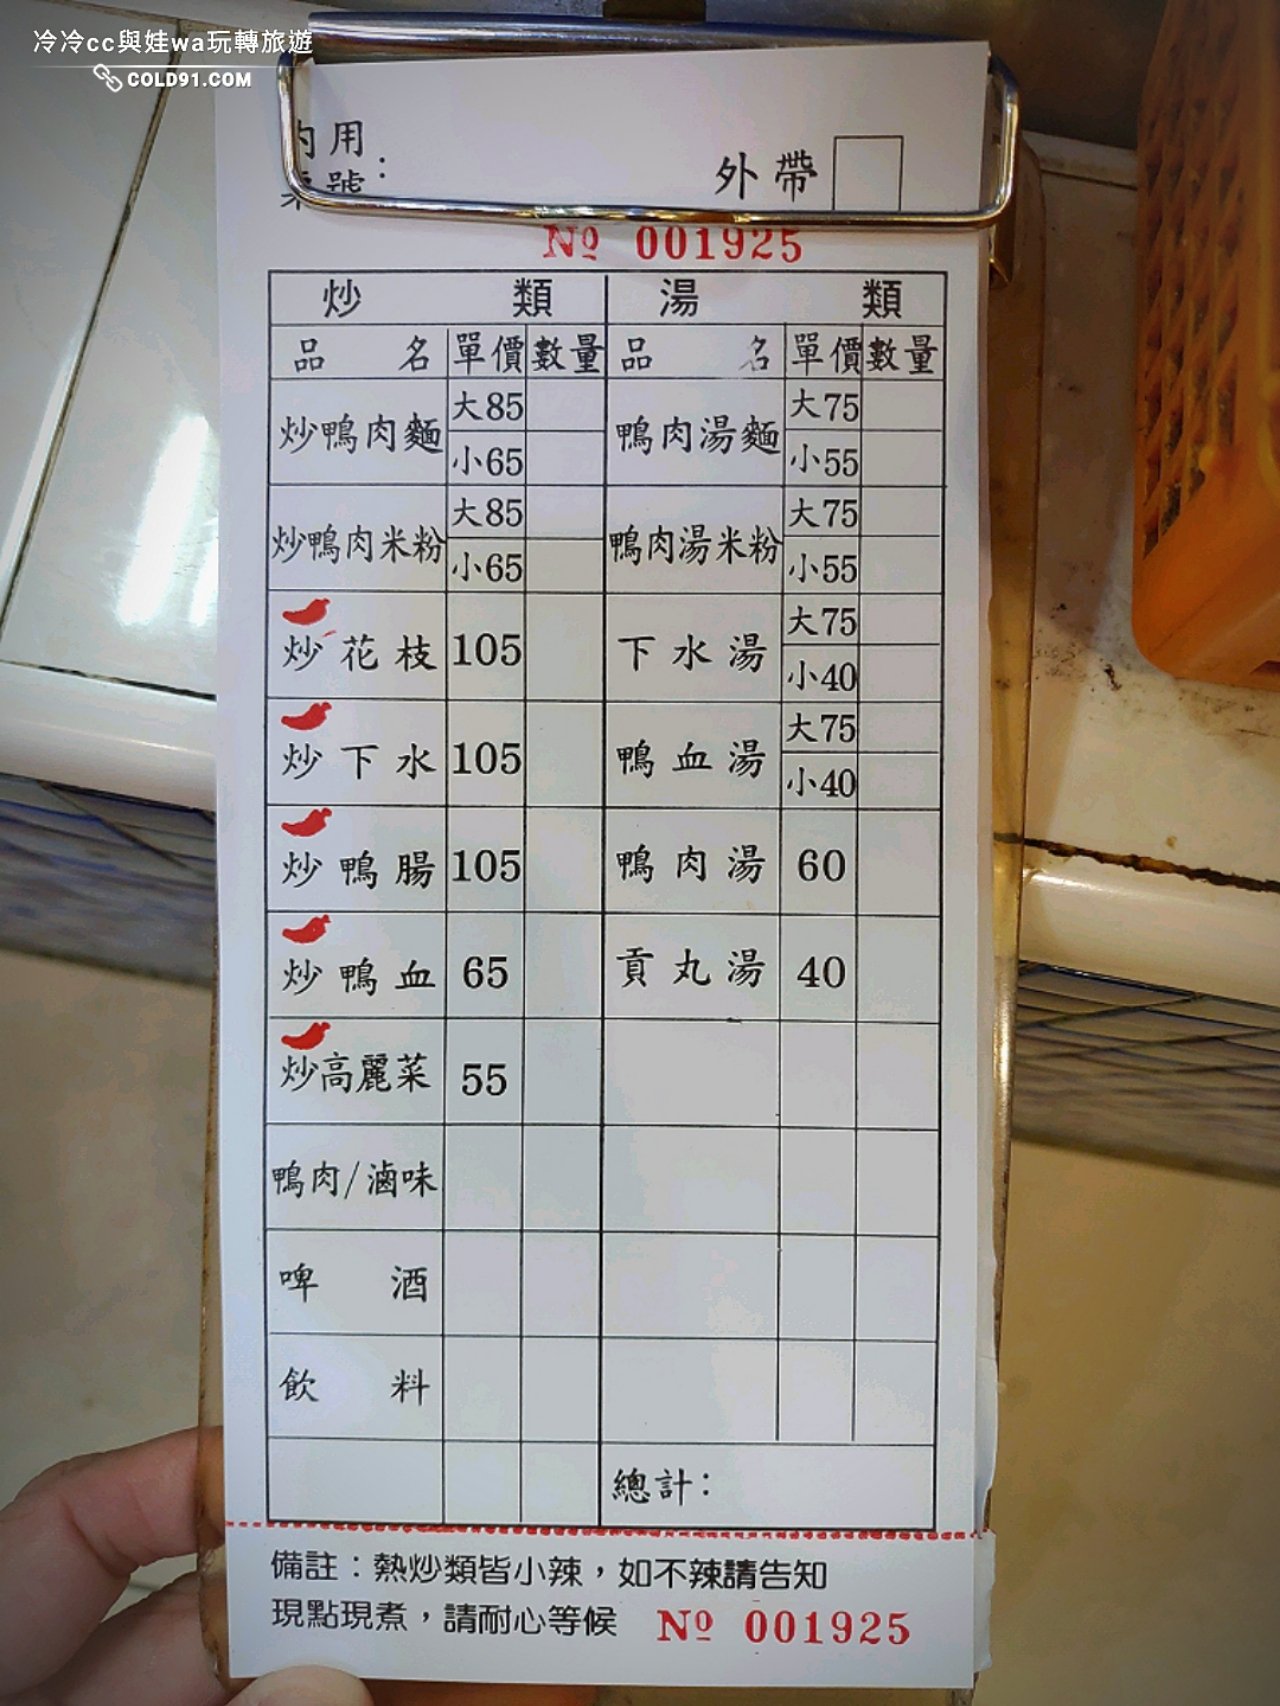 冷冷cc與娃wa玩轉旅遊
COLD91.COM
內用
桌號：
外帶
№ 001925
炒類 湯類
品名 單價 數量 品名 單價 數量
炒鴨肉麵 大85 小65 鴨肉湯麵 大75 小55
炒鴨肉米粉 大85 小65 鴨肉湯米粉 大75 小55
炒花枝 105 下水湯 大75 小40
炒下水 105 鴨血湯 大75 小40
炒鴨腸 105 鴨肉湯 60
炒鴨血 65 貢丸湯 40
炒高麗菜 55
鴨肉/滷味
啤酒
飲料
總計：
備註：熱炒類皆小辣，如不辣請告知
現點現煮，請耐心等候 № 001925